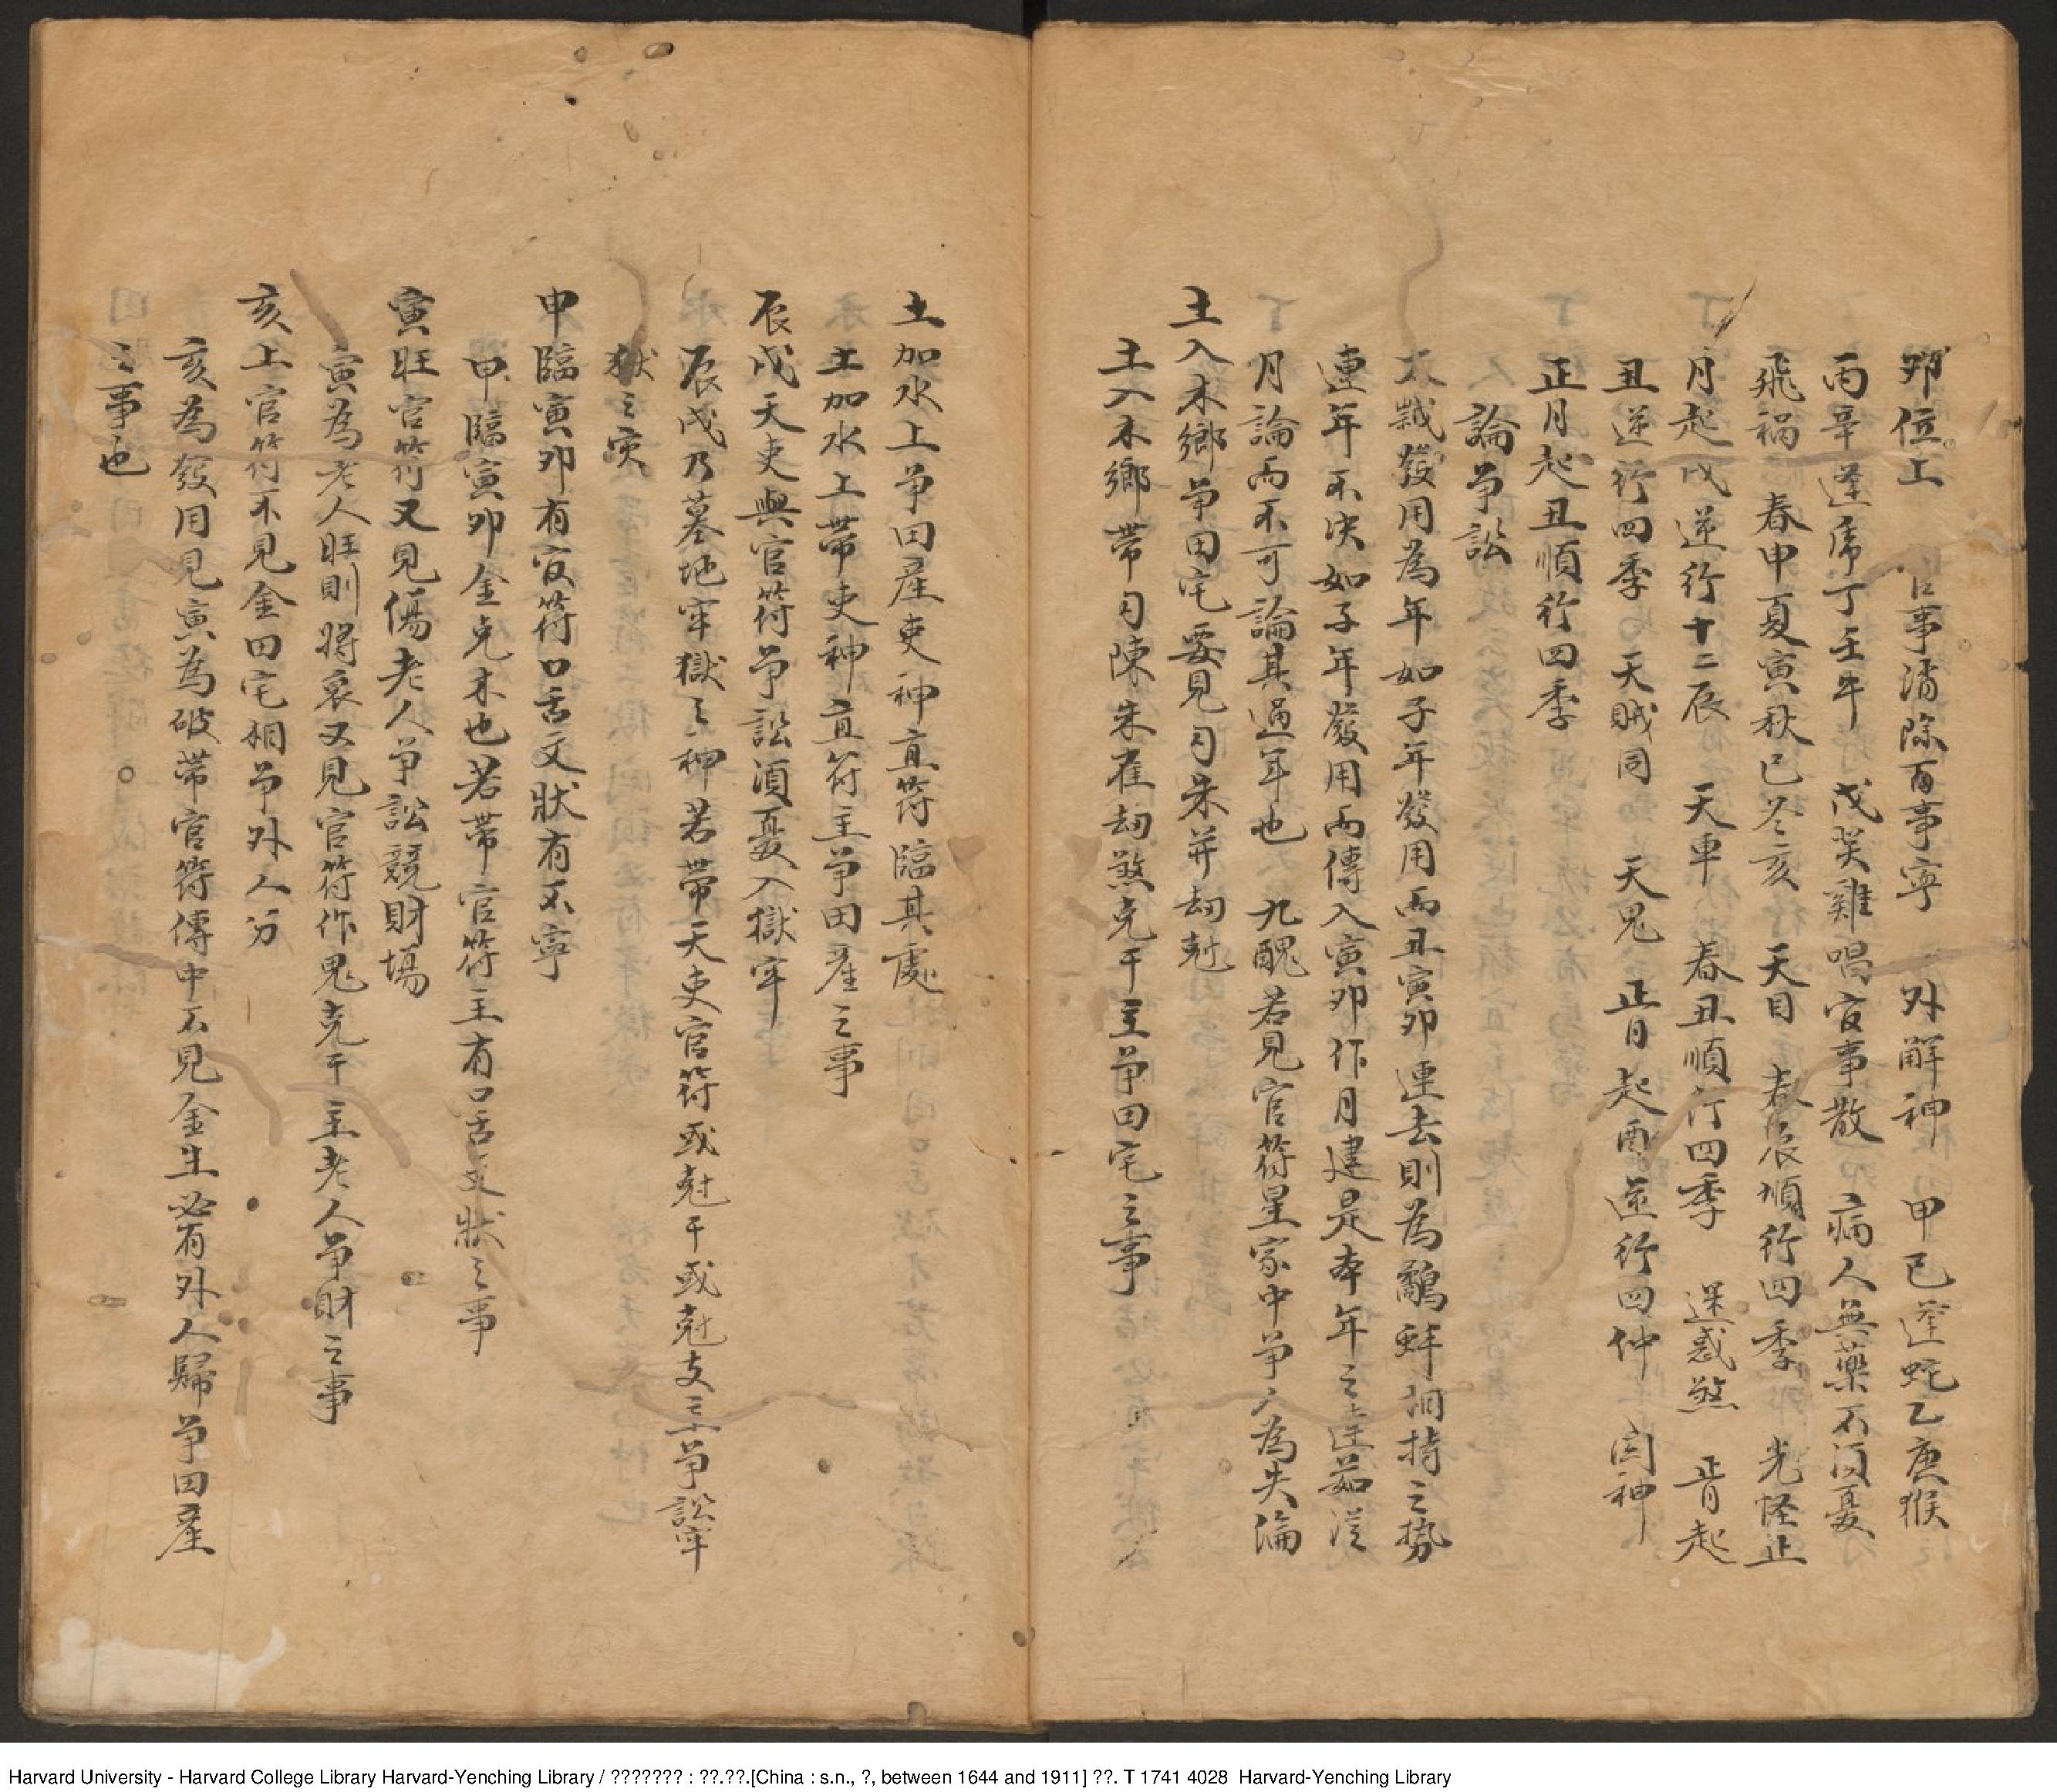 卯位上　凶事消除百事寧　外解神　甲己逢蛇乙庚猴
丙辛逢虎丁壬牛　戊癸雞唱官事散　病人無藥不須憂
飛禍　春申夏寅秋巳冬亥　天目　春辰順行四季　光怪止
月起戌逆行十二辰　天車　春丑順行四季　迷惑煞　正月起
丑逆行四季　天賊同　天鬼　正月起酉逆行四仲　関神
正月起丑順行四季
論爭訟
太歲發用為年如子年發用而丑寅卯連去則為鷸蚌相持之勢
連年不决如子年發用而傳入寅卯作月建是本年之連茹從
月論而不可論其過年也　九醜若見官符星家中爭人為失淪
土入木鄉爭田宅要見勾朱并刼尅
土入木鄉帶勾陳朱雀刼煞克干主爭田宅之事
土加水上爭田產吏神直符臨其處
土加水上帶吏神直符主爭田產之事
辰戌天吏與官符爭訟湏憂入獄牢
辰戌乃墓地牢獄之神若帶天吏官符或尅干或尅支主爭訟牢
獄之灾
申臨寅卯有官符口舌文狀有不寧
申臨寅卯金克木也若帶官符主有口舌文狀之事
寅旺官符又見傷老人爭訟競財塲
寅為老人旺則將衰又見官符作鬼克干主老人爭財之事
亥上官符不見金田宅相爭外人分
亥為發用見寅為破帶官符傳中不見金生必有外人歸爭田產
之事也
Harvard University - Harvard College Library Harvard-Yenching Library / ??????? : ??.??.[China : s.n., ?, between 1644 and 1911] ??. T 1741 4028 Harvard-Yenching Library